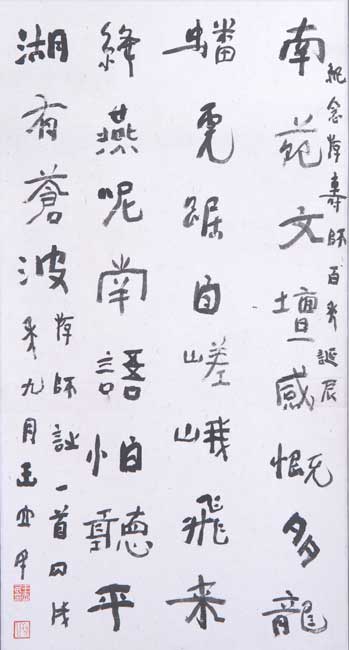 紀念師百年誕辰
南苑文壇感慨多龍
蟠虎踞自嵯峨飛来
絳燕呢喃語怕聽平
湖有蒼波
師詩一首丙戌
年九月